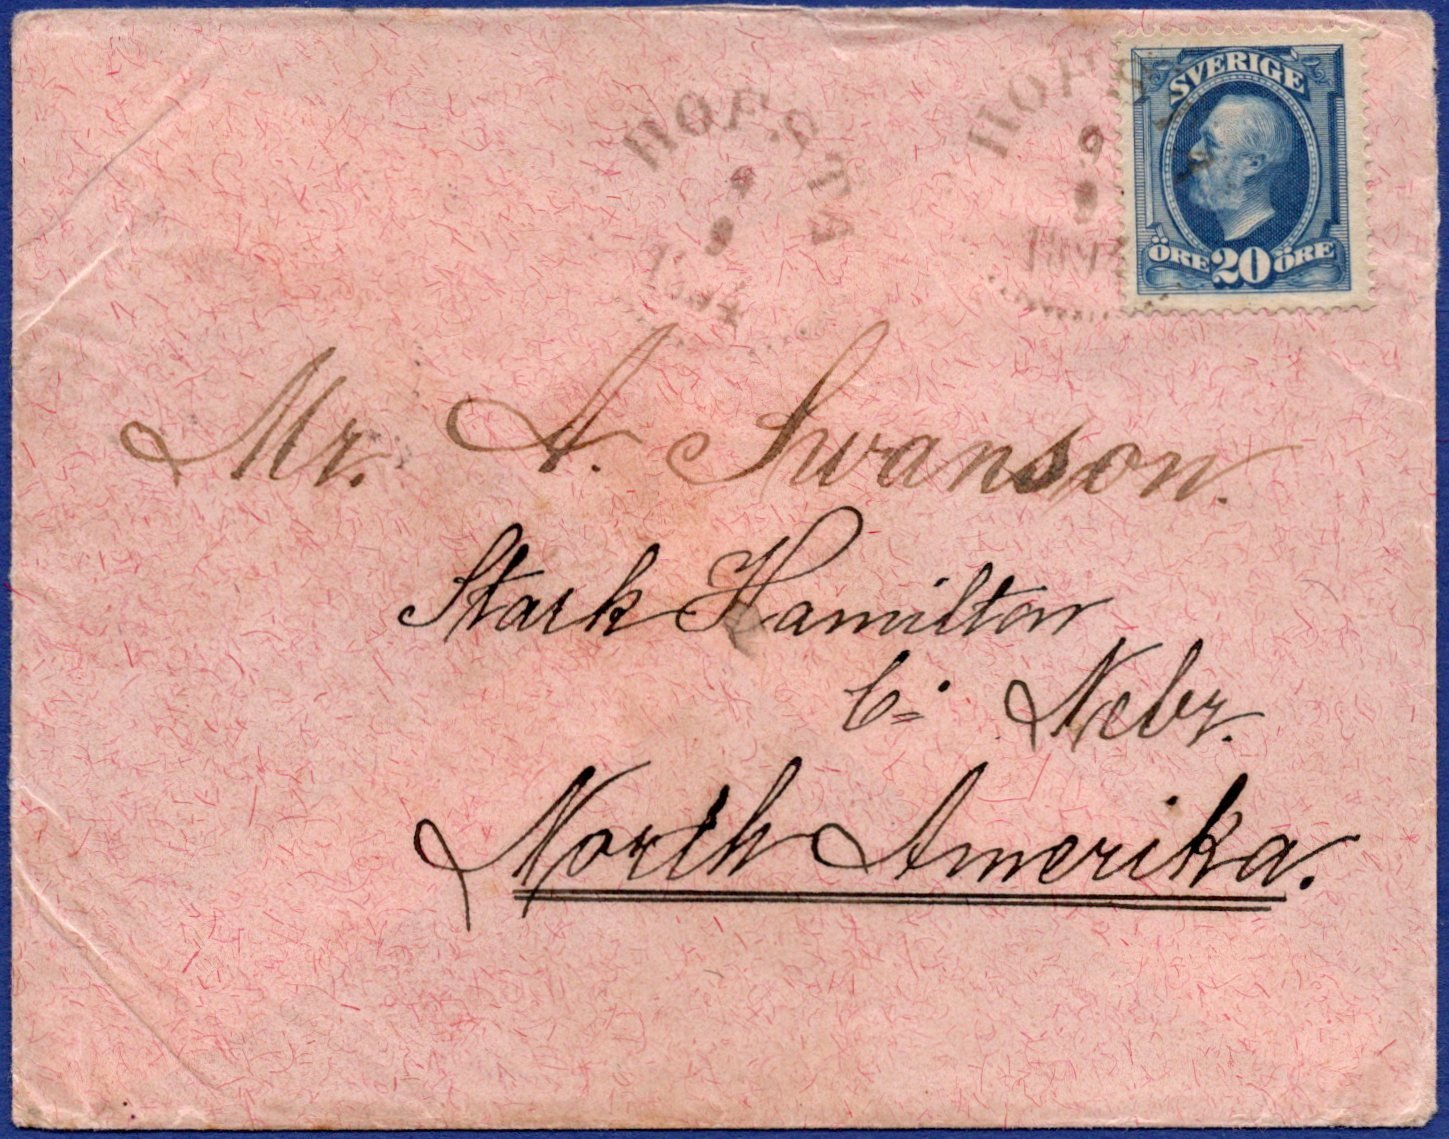 HOFSTA
9
HOFSTA
9
SVERIGE
ÖRE 20 ÖRE
Mr. A. Swanson.
Stark Hamilton
Co. Nebr.
North Amerika.